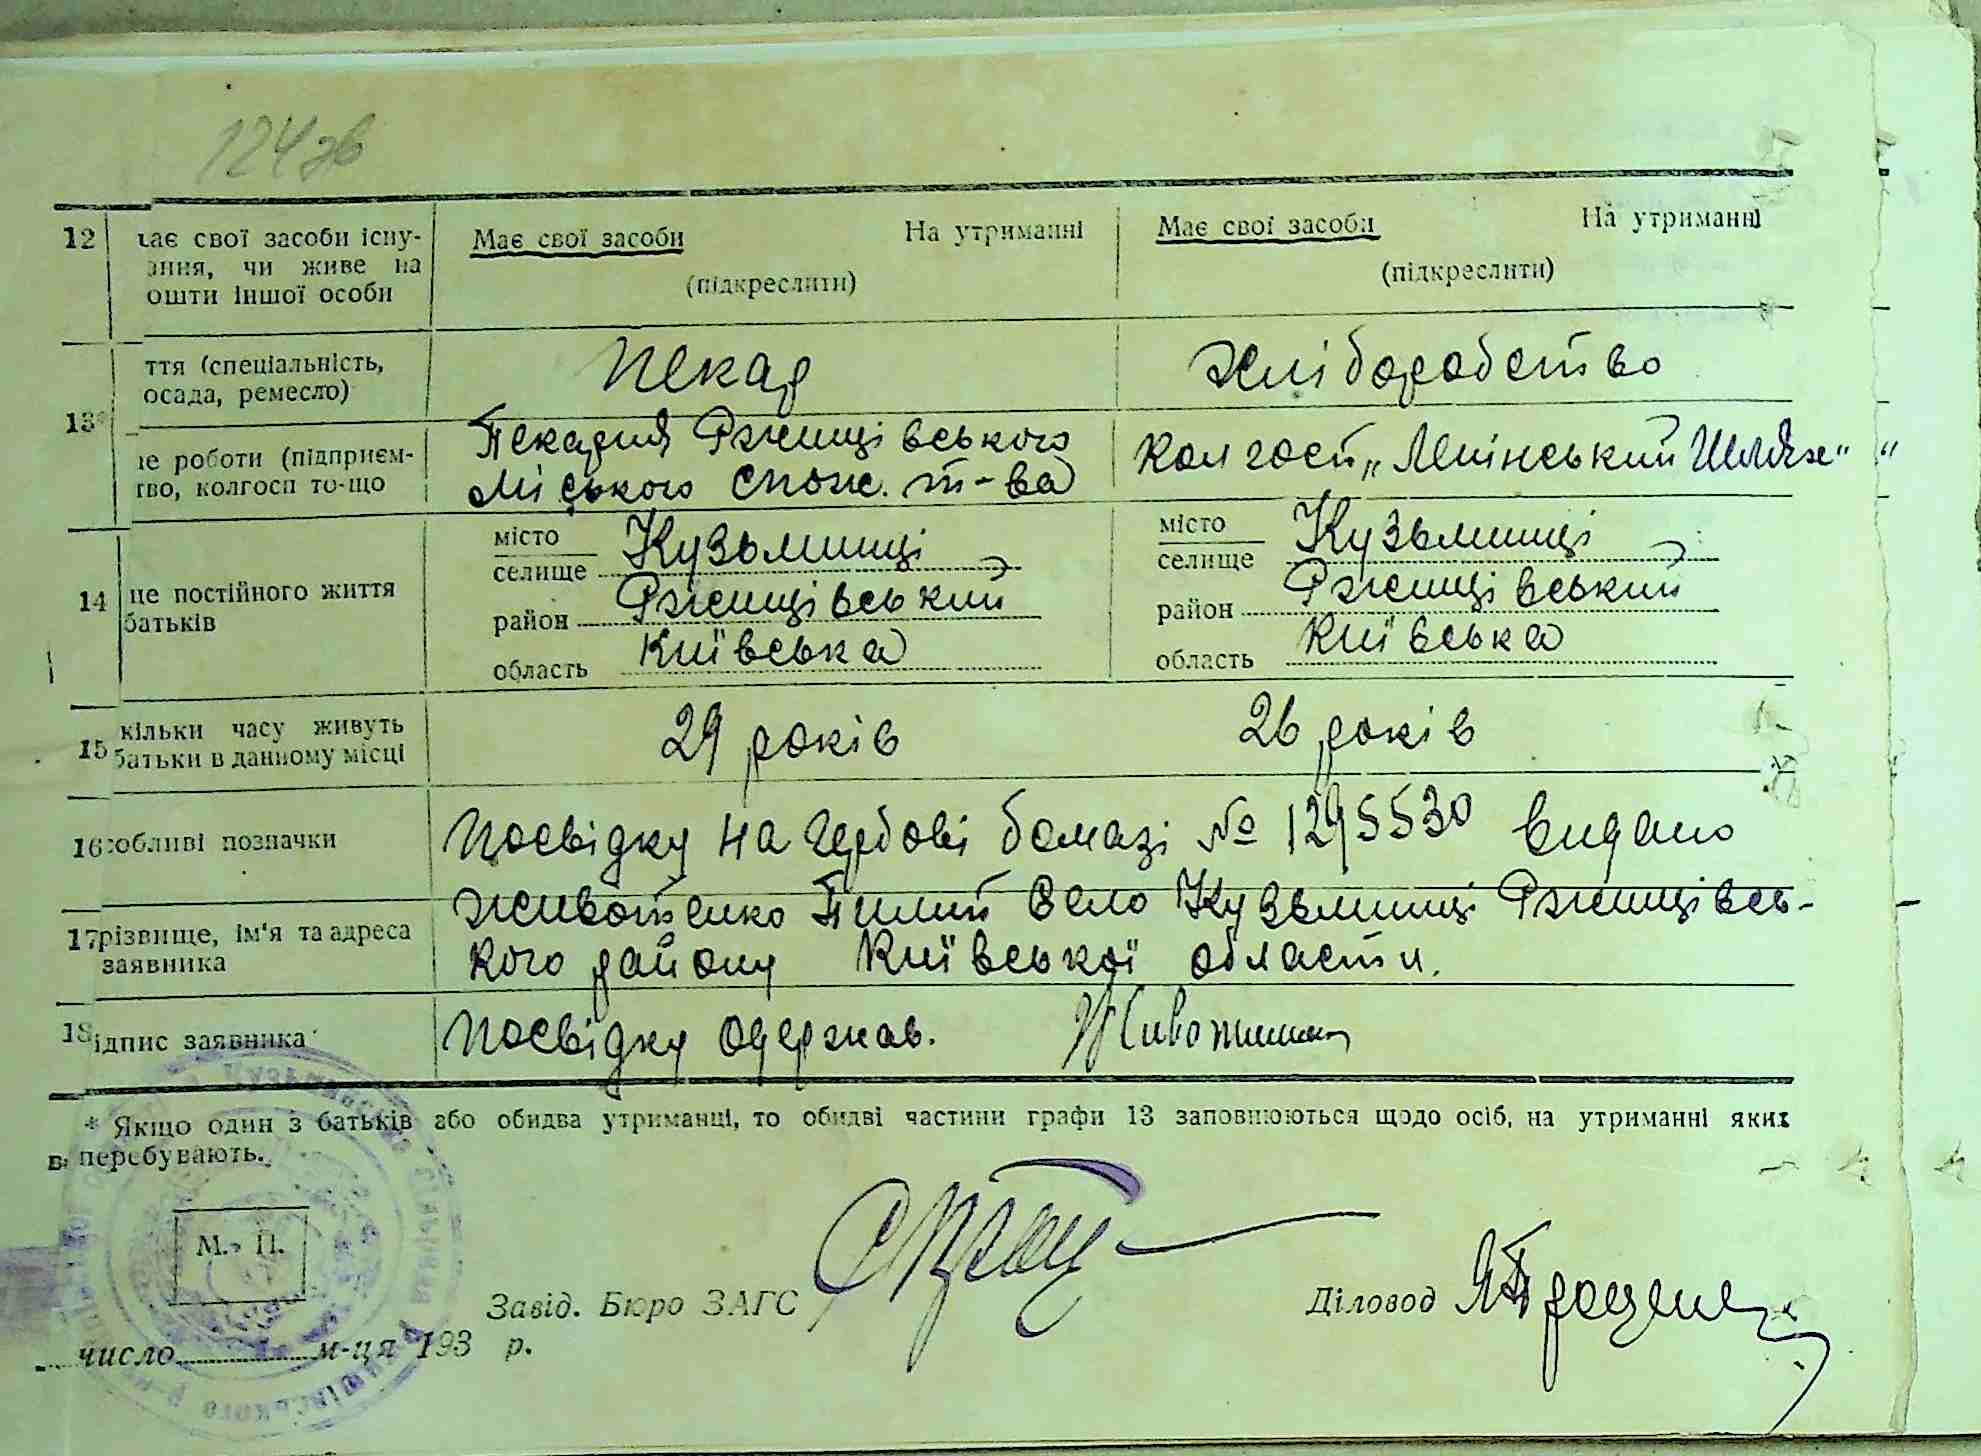 124 зв
12 має свої засоби існу- Має свої засоби На утриманні Має свої засоби На утриманні
ання, чи живе на (підкреслити) (підкреслити)
ошти іншої особи
13* ття (спеціальність, Пекар Хліборобство
осада, ремесло)
це роботи (підприєм- Пекарня Ржищівського Колгосп „Ленінський Шлях“ “
тво, колгосп то-що Міського спож. т-ва
14 це постійного життя батьків місто селище Кузьминці місто селище Кузьминці
район Ржищівський район Ржищівський
область Київська область Київська
15 кільки часу живуть 29 років 26 років
батьки в данному місці
16 собливі позначки Посвідку на гербові бомазі № 1295530 видано
17 різвище, ім'я та адреса Животенко Пилип Село Кузьминці Ржищівсь-
заявника кого району Київської области.
18 ідпис заявника Посвідку одержав. Животенко
* Якщо один з батьків або обидва утриманці, то обидві частини графи 13 заповнюються щодо осіб, на утриманні яких
в. перебувають.
М. П.
Завід. Бюро ЗАГС Діловод
число м-ця 193 р.